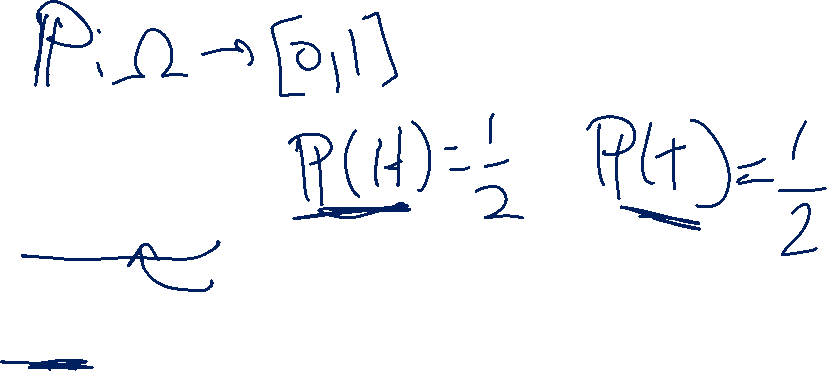 ℙ: Ω → [0,1]
ℙ(H) = 1/2 ℙ(T) = 1/2